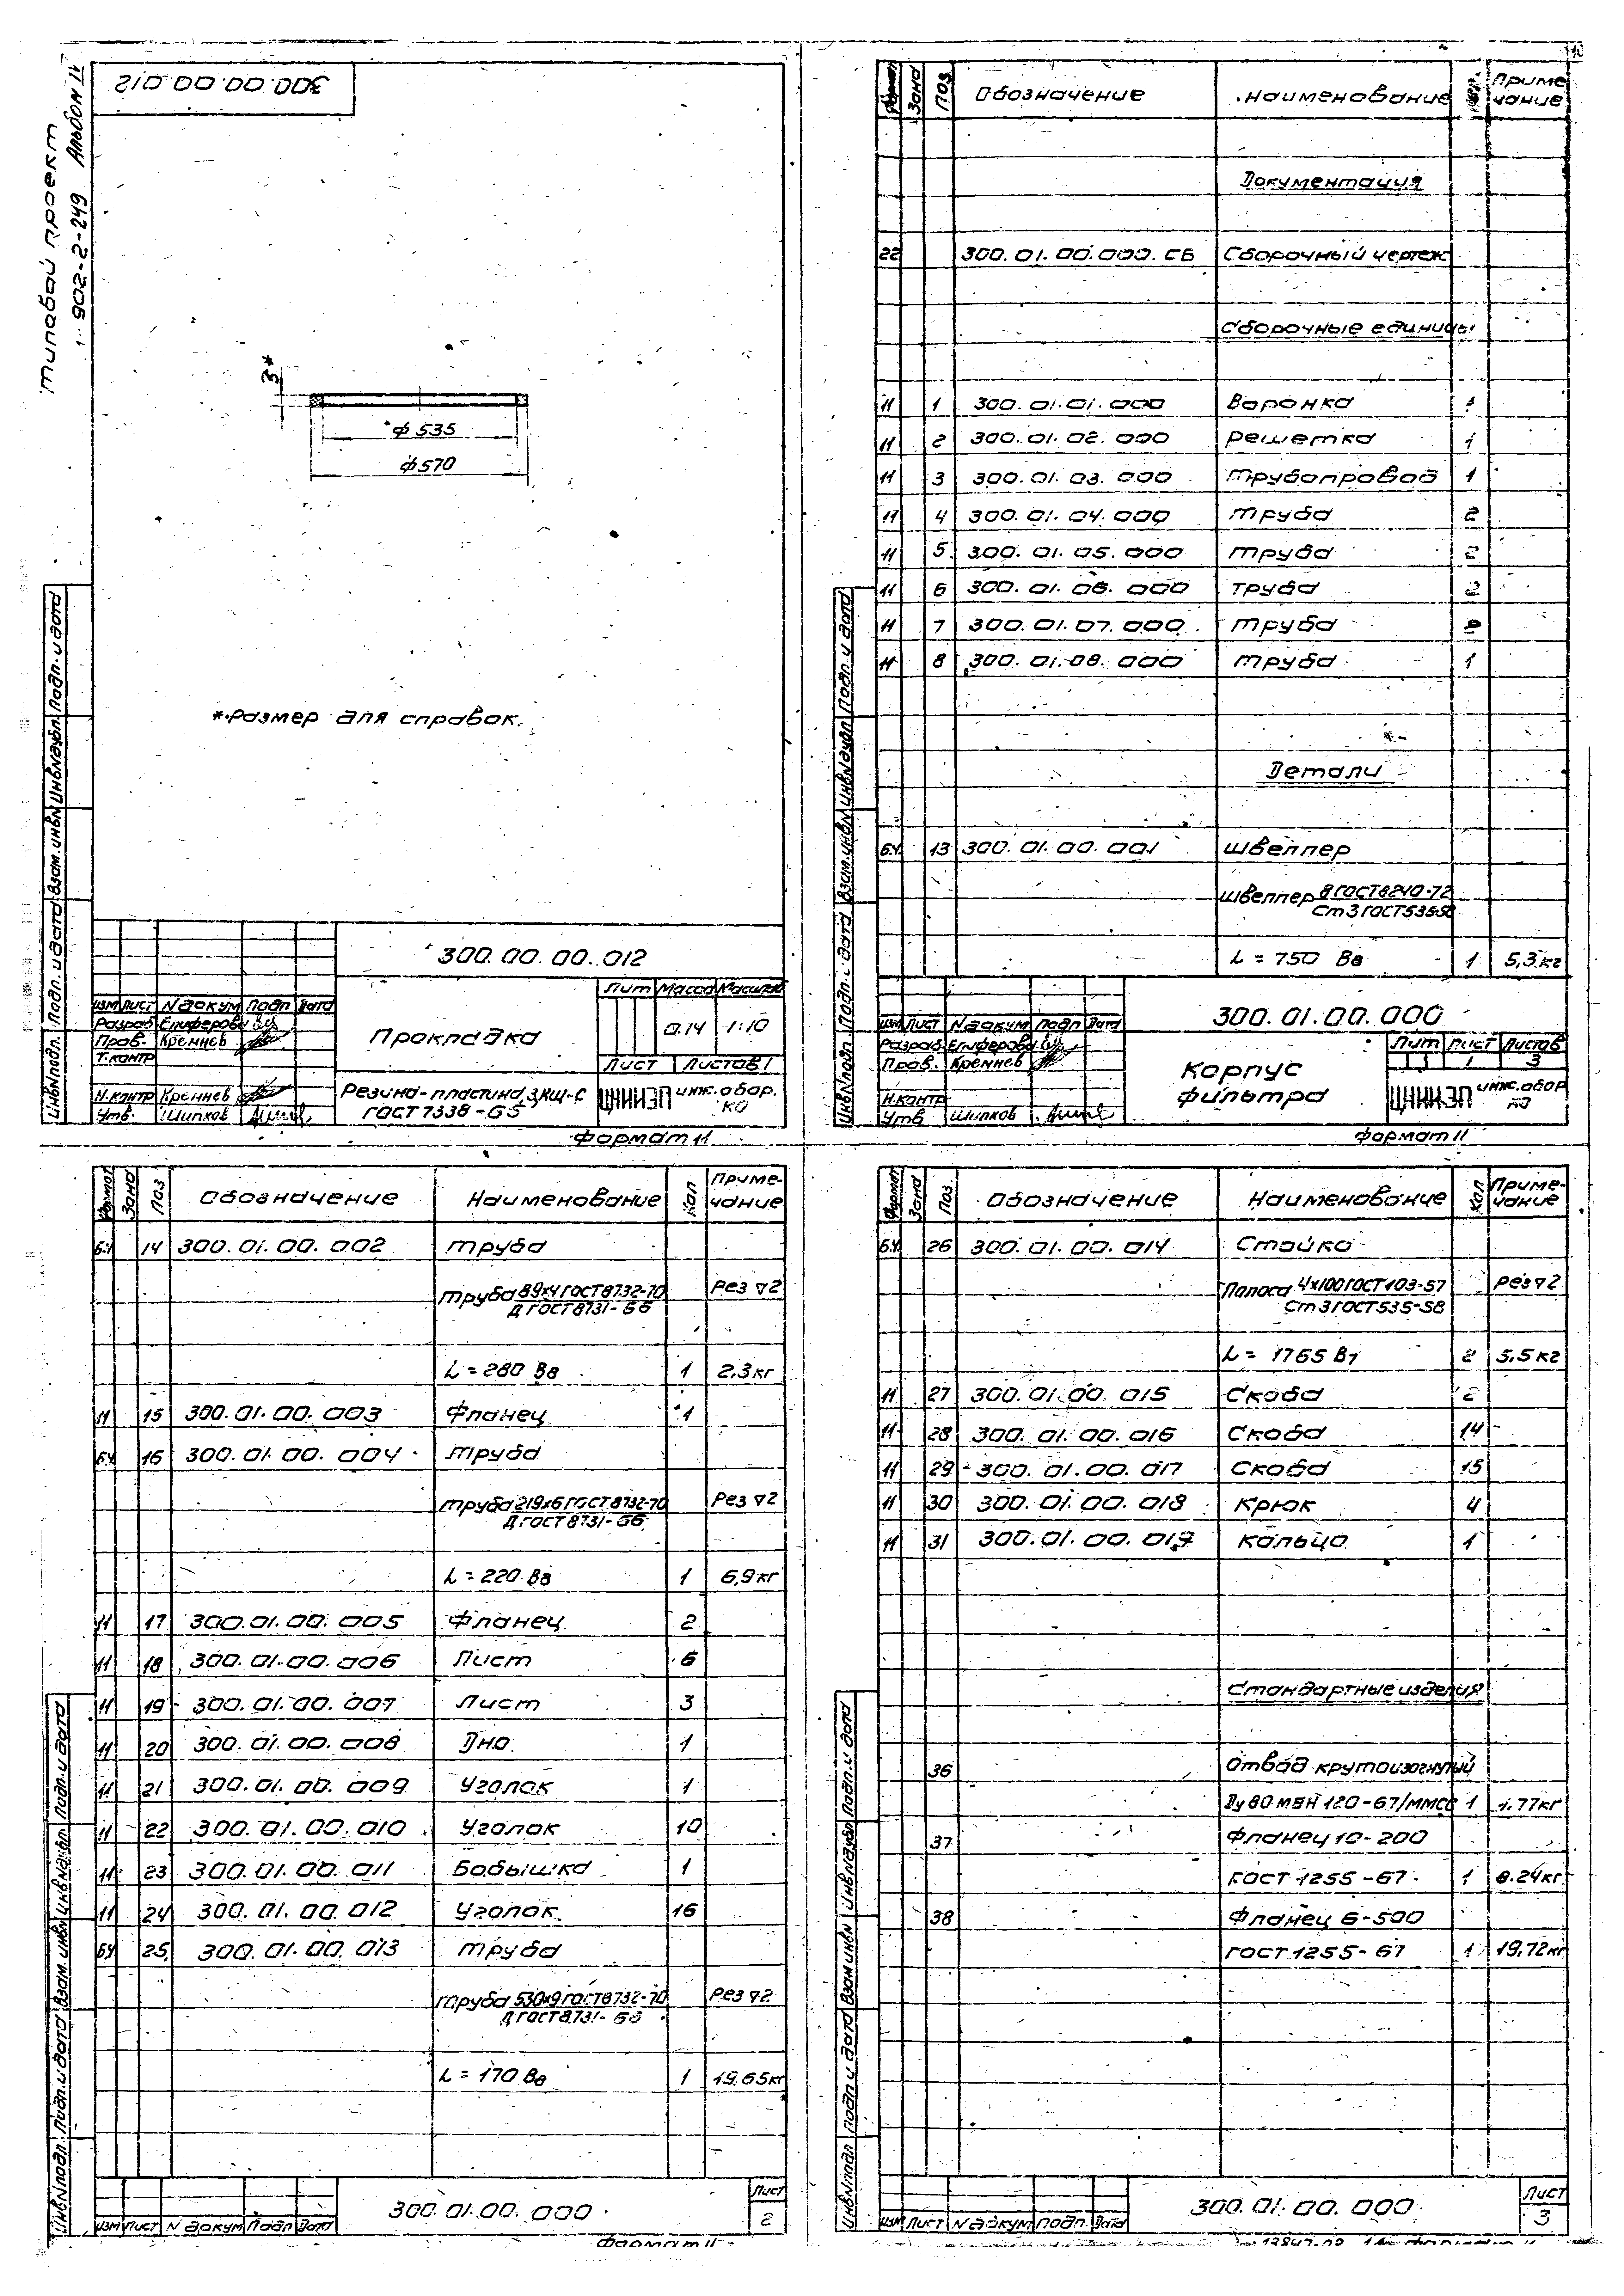 10
Типовой проект
902-2-249 Альбон IV
300.00.00.012
3*
ф535
ф570
* Размер для справок.
Инв№подл. Подп. и дата Взам.инв№ Инв№дубл. Подп. и дата
300.00.00.012
Изм Лист № докум Подп Дата
Разраб Елиферова
Пров. Кремнев
Т.контр
Н.контр Кремнев
Утв. Шипков
Прокладка
Лит Масса Масштаб
0.14 1:10
Лист Листов 1
Резина-пластина 3, КЩ-С
ГОСТ 7338-65
ЦНИИЭП инж.обор.
КО
Формат 11
Формат Зона Поз. Обозначение Наименование Кол. Приме
чание
Документация
22 300.01.00.000.СБ Сборочный чертеж
Сборочные единицы
11 1 300.01.01.000 Воронка 1
11 2 300.01.02.000 Решетка 1
11 3 300.01.03.000 Трубопровод 1
11 4 300.01.04.000 Труба 2
11 5 300.01.05.000 Труба 2
11 6 300.01.06.000 Труба 2
11 7 300.01.07.000 Труба 2
11 8 300.01.08.000 Труба 1
Детали
б.ч. 13 300.01.00.001 Швеллер
Швеллер 8 ГОСТ 8240-72
Ст 3 ГОСТ 535-58
L = 750 В8 1 5,3 кг
Инв№подл Подп. и дата Взам.инв№ Инв№дубл Подп. и дата
300.01.00.000
Изм Лист № докум Подп Дата
Разраб. Елиферова
Пров. Кремнев
Н.контр
Утв Шипков
Корпус
фильтра
Лит Лист Листов
1 3
ЦНИИЭП инж.обор
КО
Формат 11
Формат Зона Поз Обозначение Наименование Кол Приме-
чание
б.ч 14 300.01.00.002 Труба
Труба 89х4 ГОСТ 8732-70 Рез ▽2
Д ГОСТ 8731-66
L = 280 В8 1 2,3 кг
11 15 300.01.00.003 Фланец 1
б.ч 16 300.01.00.004 Труба
Труба 219х6 ГОСТ 8732-70 Рез ▽2
Д ГОСТ 8731-66
L = 220 В8 1 6,9 кг
11 17 300.01.00.005 Фланец 2
11 18 300.01.00.006 Лист 6
11 19 300.01.00.007 Лист 3
11 20 300.01.00.008 Дно 1
11 21 300.01.00.009 Уголок 1
11 22 300.01.00.010 Уголок 10
11 23 300.01.00.011 Бобышка 1
11 24 300.01.00.012 Уголок 16
б.ч 25 300.01.00.013 Труба
Труба 530х9 ГОСТ 8732-70 Рез ▽2
Д ГОСТ 8731-66
L = 170 В8 1 19.65 кг
Инв№подл. Подп. и дата Взам.инв№ Инв№дубл. Подп. и дата
Изм Лист № докум Подп Дата
300.01.00.000
Лист
2
Формат 11
Формат Зона Поз. Обозначение Наименование Кол Приме-
чание
б.ч. 26 300.01.00.014 Стойка
Полоса 4х100 ГОСТ 103-57 Рез ▽2
Ст 3 ГОСТ 535-58
L = 1765 В7 2 5,5 кг
11 27 300.01.00.015 Скоба 2
11 28 300.01.00.016 Скоба 14
11 29 300.01.00.017 Скоба 15
11 30 300.01.00.018 Крюк 4
11 31 300.01.00.019 Кольцо 1
Стандартные изделия
36 Отвод крутоизогнутый
Ду 80 МВН 120-67/ММСС 1 1.77 кг
37 Фланец 10-200
ГОСТ 1255-67 1 8.24 кг
38 Фланец 6-500
ГОСТ 1255-67 1 19,72 кг
Инв№подл Подп и дата Взам инв№ Инв№дубл Подп. и дата
Изм Лист № докум Подп. Дата
300.01.00.000
Лист
3